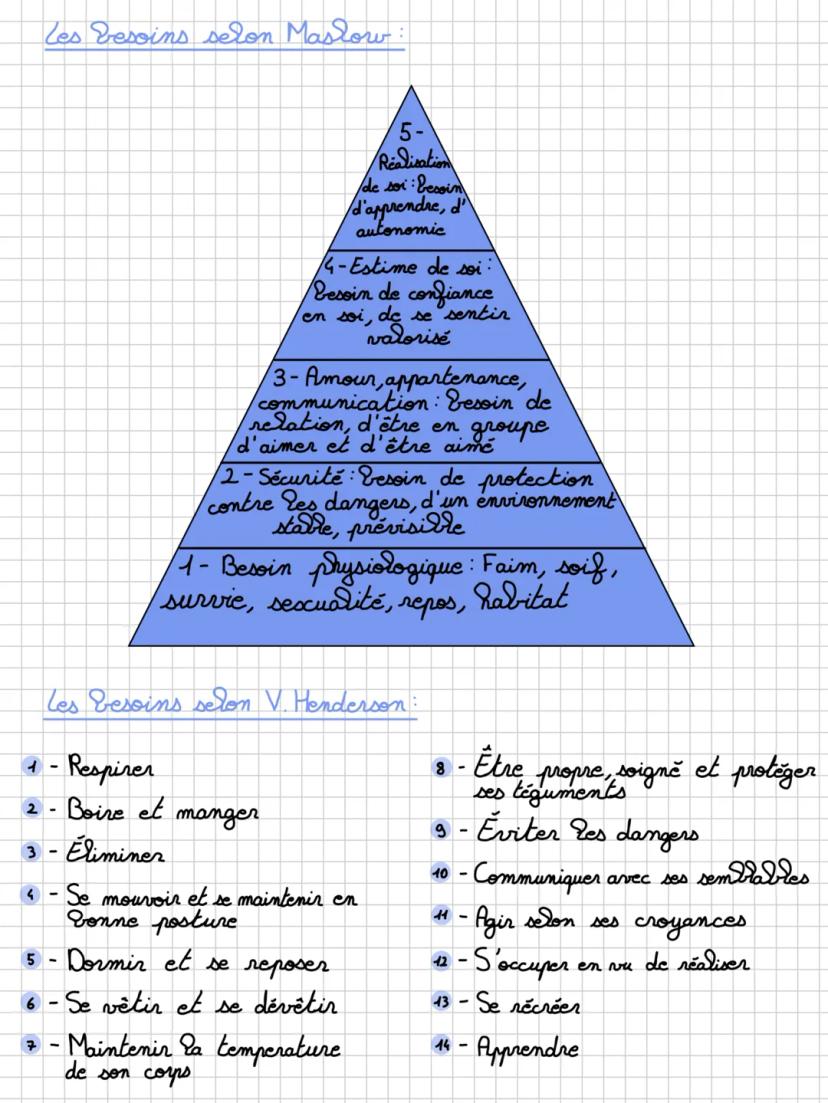 Les besoins selon Maslow :
5-
Réalisation
de soi : besoin
d'apprendre, d'
autonomie
4 - Estime de soi :
Besoin de confiance
en soi, de se sentir
valorisé
3 - Amour, appartenance,
communication : besoin de
relation, d'être en groupe
d'aimer et d'être aimé
2 - Sécurité : besoin de protection
contre les dangers, d'un environnement
stable, prévisible
1 - Besoin physiologique : Faim, soif,
survie, sescualité, repos, habitat
Les besoins selon V. Henderson :
1 - Respirer
2 - Boire et manger
3 - Éliminer
4 - Se mouvoir et se maintenir en
bonne posture
5 - Dormir et se reposer
6 - Se vêtir et se dévêtir
7 - Maintenir la temperature
de son corps
8 - Être propre, soigné et protéger
ses téguments
9 - Éviter les dangers
10 - Communiquer avec ses semblables
11 - Agir selon ses croyances
12 - S'occuper en vu de réaliser
13 - Se récréer
14 - Apprendre